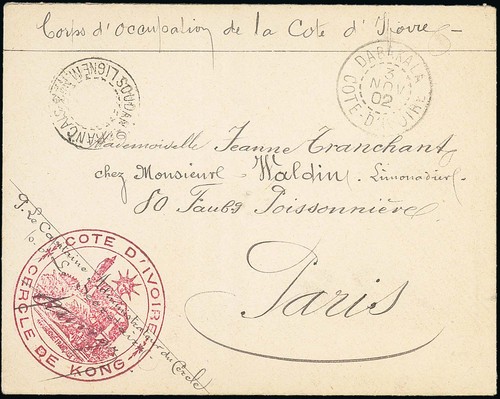 Corps d'Occupation de la Cote d'Ivoire
DABAKALA
3
NOV
02
COTE-D'IVOIRE
Mademoiselle Jeanne Tranchant
chez Monsieur Waldin. Limonadier
80 Faubg Poissonnière
Paris
COTE D'IVOIRE
CERCLE DE KONG
P. Le Capitaine Administrateur du Cercle